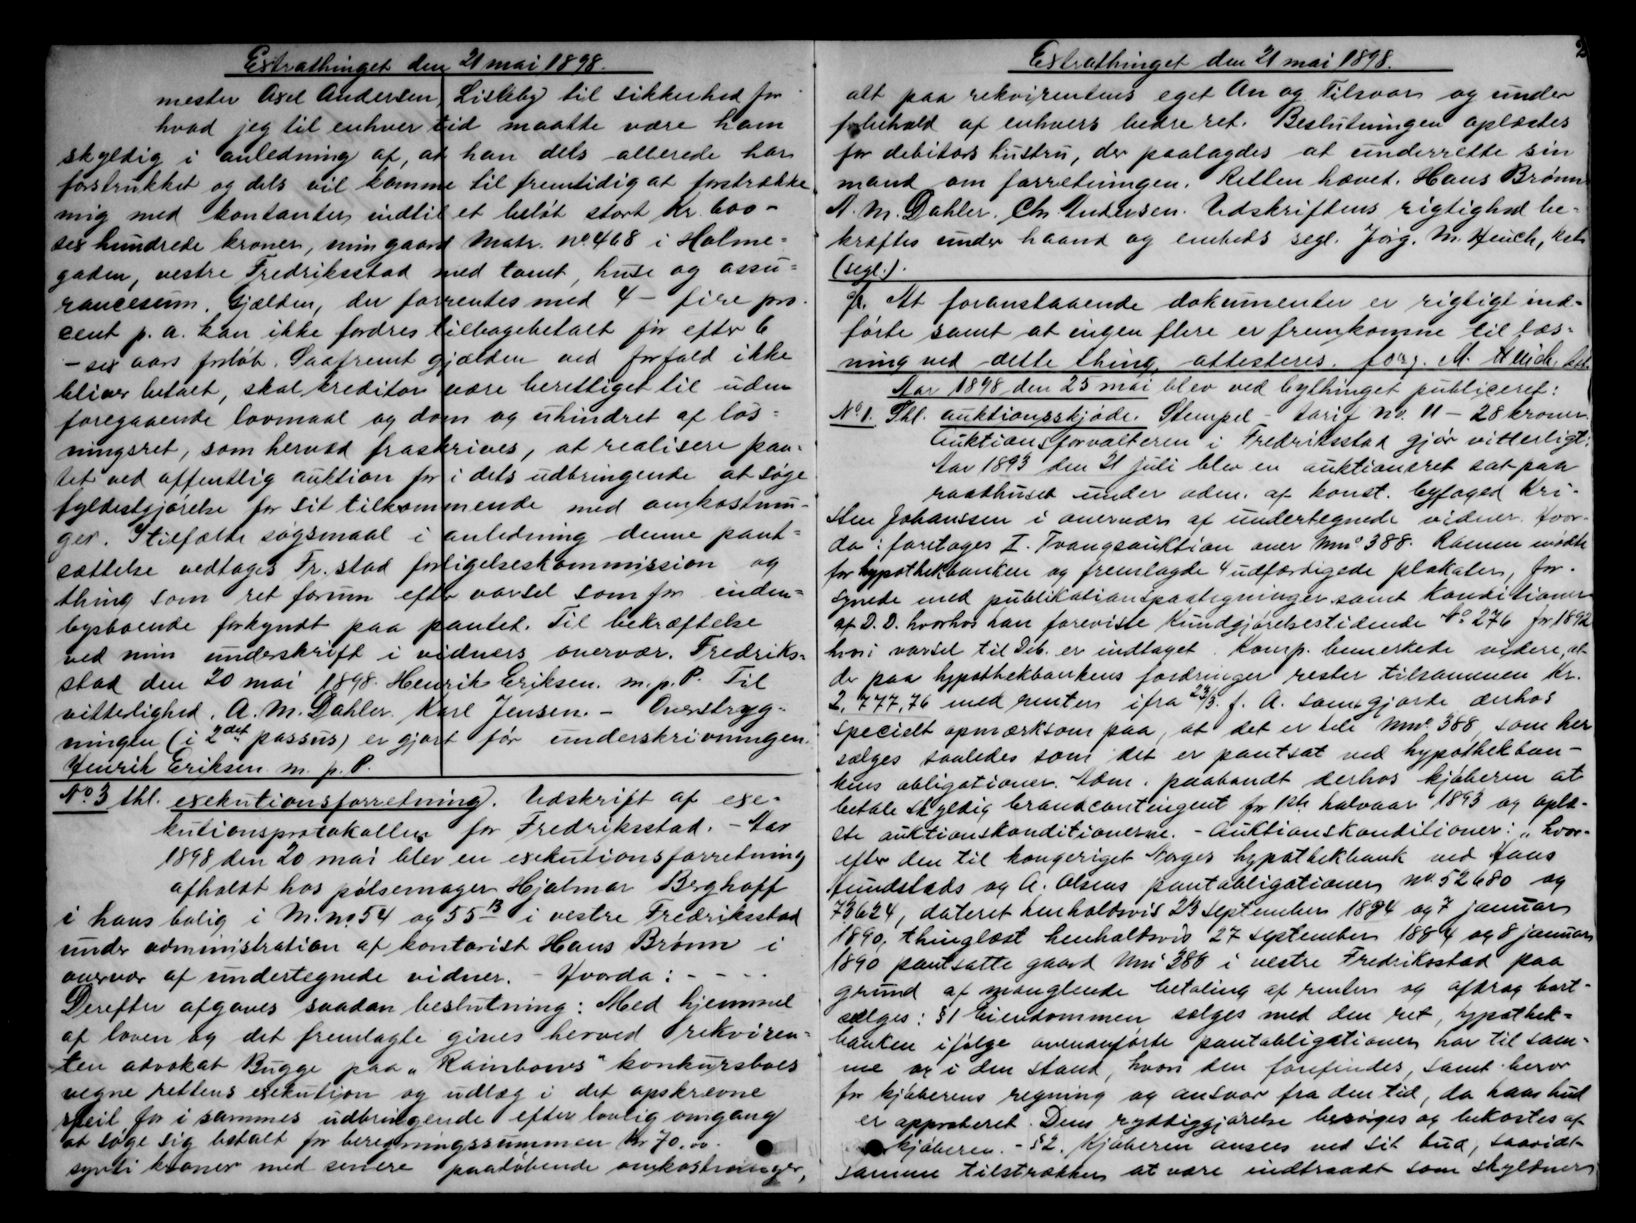 Extrathinget den 21 mai 1898.
mester Axel Andersen, Lisleby til sikkerhed for
hvad jeg til enhver tid maatte være ham
skyldig i anledning af, at han dels allerede har
forstrukket og dels vil komme til fremtidig at forstrække
mig med kontanter indtil et beløb stort Kr. 600 –
sex hundrede kroner, min gaard Matr. no. 468 i Holme=
gaden, vestre Fredriksstad med tomt, huse og assu=
rancesum. Gjælden, der forrentes med 4 – fire pro-
cent p. a. kan ikke fordres tilbagebetalt før efter 6
– sex aars forløb. Saafremt gjælden ved forfald ikke
bliver betalt, skal kreditor være berettiget til uden
foregaaende lovmaal og dom og uhindret af løs=
ningsret, som herved fraskrives, at realisere pan=
tet ved offentlig auktion for i dets udbringende at søge
fyldestgjørelse for sit tilkommende med omkostnin-
ger. I tilfælde søgsmaal i anledning denne pant=
sættelse vedtages Fr.stad forligelseskommission og
thing som ret forum efter varsel som for inden=
bysboende forkyndt paa pantet. Til bekræftelse
ved min underskrift i vidners overvær. Fredriks-
stad den 20 mai 1898. Henrik Eriksen. m. p. P. Til
vitterlighed. A. M. Dahler. Karl Jensen. – Overstryg-
ningen (i 2det passus) er gjort før underskrivningen.
Henrik Eriksen. m. p. P.
No. 3 thl. exekutionsforretning. Udskrift af exe-
kutionsprotokollen for Fredriksstad. – Aar
1898 den 20 mai blev en exekutionsforretning
afholdt hos pølsemager Hjalmar Berghoff
i hans bolig i M. no. 54 og 55 B i vestre Fredriksstad
under administration af kontorist Hans Brønn i
overvær af undertegnede vidner. – Hvorda: - - - -
Derefter afgaves saadan beslutning: Med hjemmel
af loven og det fremlagte gives herved rekviren-
ten advokat Bugge paa „Rainbows“ konkursboes
vegne rettens exekution og udlæg i det opskrevne
speil for i sammes udbringende efter lovlig omgang
at søge sig betalt for beregningssummen Kr 70.00.
sytti kroner med senere paaløbende omkostninger,
Extrathinget den 21 mai 1898.
2
alt paa rekvirentens eget An og Tilsvar og under
forbehold af enhvers bedre ret. Beslutningen oplæstes
for debitors hustru, der paalagdes at underrette sin
mand om forretningen. Retten hævet. Hans Brønn
A. M. Dahler. Chr Andersen. Udskriftens rigtighed be-
kræftes under haand og embeds segl. Jørg. M. Heuch, kst.
(segl.).
At foranstaaende dokumenter er rigtigt ind=
førte samt at ingen flere er fremkomne til læs-
ning ved dette thing, attesteres. Jørg. M. Heuch, kst.
Aar 1898 den 25 mai blev ved bythinget publiceret:
No. 1. Thl. auktionsskjøde. Stempel – tarif no. 11 – 28 kroner.
Auktionsforvalteren i Fredriksstad gjør vitterligt:
Aar 1893 den 21 juli blev en auktionsret sat paa
raadhuset under adm. af konst. byfoged Kri-
sten Johanssen i overvær af undertegnede vidner. Hvor-
da: foretoges I. Tvangsauktion over Mno 388. Ramm mødte
for hypothekbanken og fremlagde 4 udfærdigede plakater, for-
synede med publikationspaategninger samt konditioner
af D. D. hvorhos han foreviste Kundgjørelsestidende No. 276 for 1892
hvori varsel til Deb. er indtaget. Komp. bemerkede videre, at
der paa hypothekbankens fordringer rester tilsammen Kr.
2,777,76 med renter ifra 23/3 f. A. som gjorte derhos
specielt opmærksom paa, at det er hele Mno 388, som her
sælges saaledes som det er pantsat ved hypothekban-
kens obligationer. Adm. paabandt derhos kjøberen at
betale skyldig brandcontingent for 1ste halvaar 1893 og oplæ-
ste auktionskonditionerne. – Auktionskonditioner: „hvor-
efter den til kongeriget Norges hypothekbank ved Hans
Hundstads og A. Olsens pantobligationer no. 52680 og
73624, dateret henholdsvis 23 september 1884 og 7 januar
1890, thinglæst henholdsvis 27 september 1884 og 8 januar
1890 pantsatte gaard Mno 388 i vestre Fredriksstad paa
grund af manglende betaling af renter og afdrag bort-
sælges: § 1 Eiendommen sælges med den ret, hypothek=
banken ifølge ovenanførte pantobligationer har til sam-
me og i den stand, hvori den forefindes, samt beror
for kjøberens regning og ansvar fra den tid, da hans bud
er approberet. Dens ryddiggjørelse besørges og bekostes af
kjøberen. – § 2. Kjøberen ansees ved sit bud, saavidt
samme tilstrækker at være indtraadt som skyldner